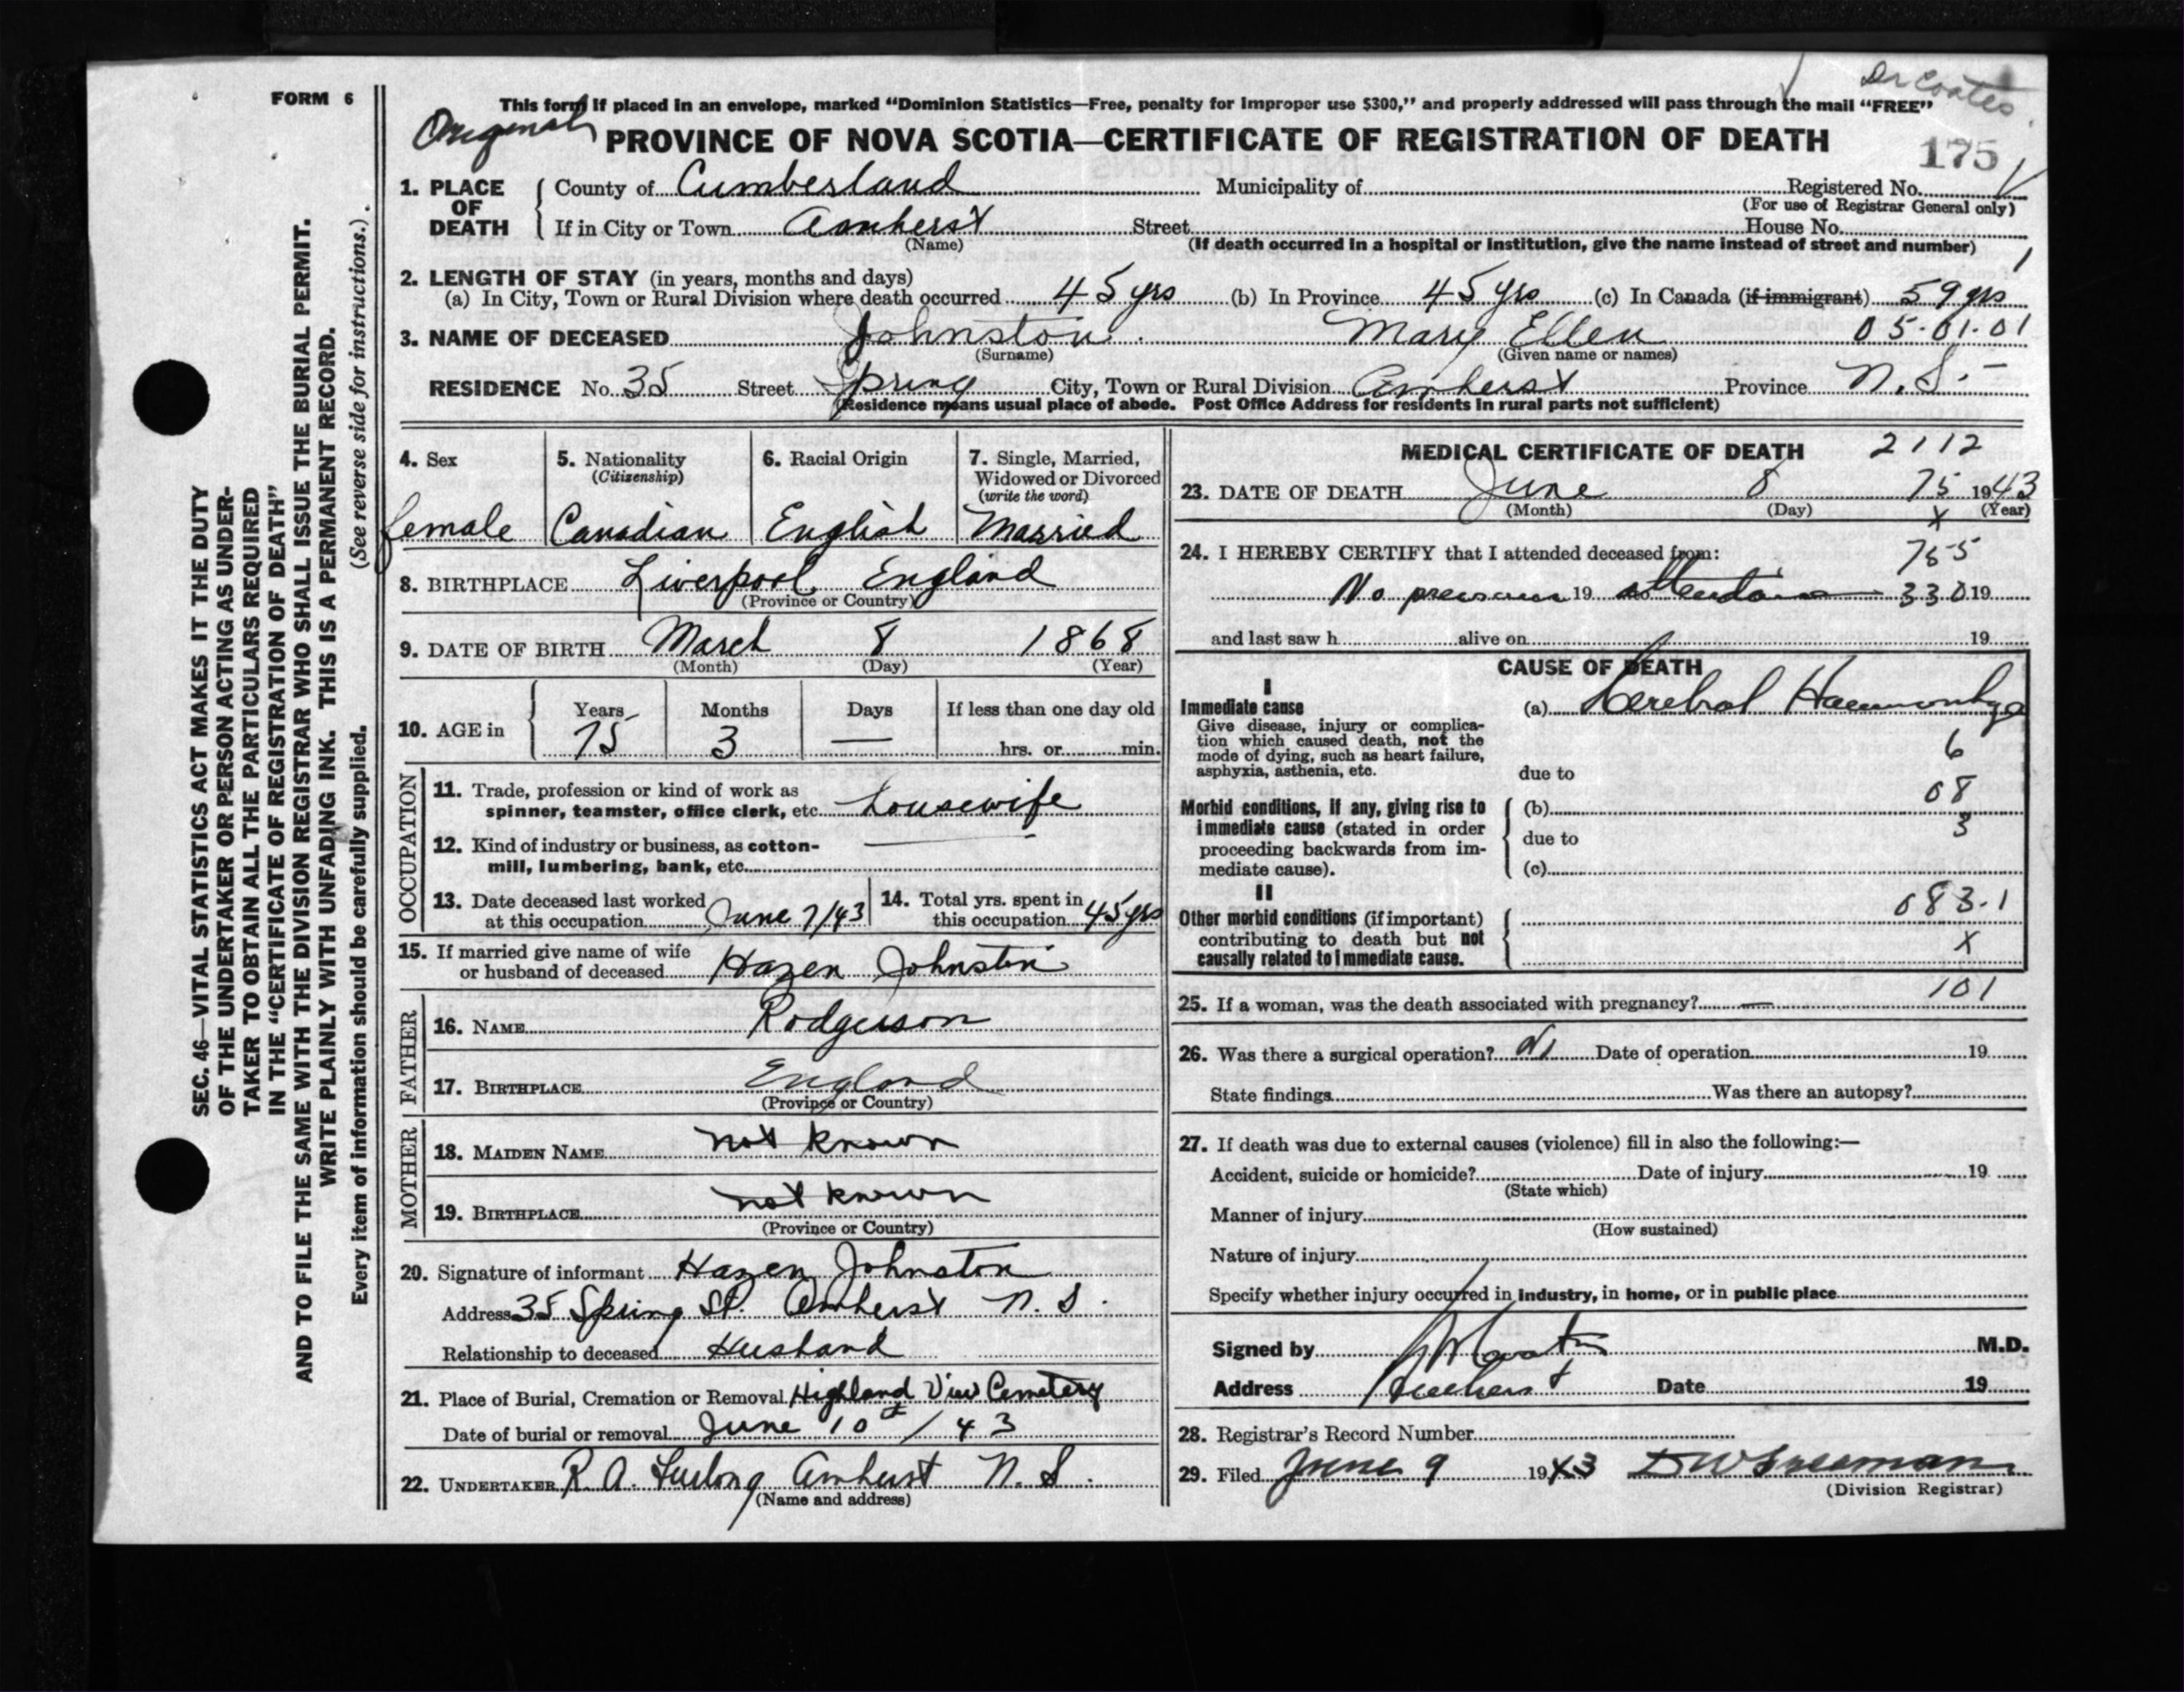 Dr Coates
FORM 6
This form if placed in an envelope, marked “Dominion Statistics—Free, penalty for improper use $300,” and properly addressed will pass through the mail “FREE”
Original
PROVINCE OF NOVA SCOTIA—CERTIFICATE OF REGISTRATION OF DEATH
175
1. PLACE OF DEATH
County of Cumberland Municipality of Registered No.
(For use of Registrar General only)
If in City or Town Amherst Street House No.
(Name) (If death occurred in a hospital or institution, give the name instead of street and number)
2. LENGTH OF STAY (in years, months and days)
(a) In City, Town or Rural Division where death occurred 45 yrs (b) In Province 45 yrs (c) In Canada (if immigrant) 59 yrs
3. NAME OF DECEASED Johnston Mary Ellen 05-01-01
(Surname) (Given name or names)
RESIDENCE No. 35 Street Spring City, Town or Rural Division Amherst Province N.S.
(Residence means usual place of abode. Post Office Address for residents in rural parts not sufficient)
4. Sex
female
5. Nationality
(Citizenship)
Canadian
6. Racial Origin
English
7. Single, Married,
Widowed or Divorced
(write the word)
Married
8. BIRTHPLACE Liverpool England
(Province or Country)
9. DATE OF BIRTH March 8 1868
(Month) (Day) (Year)
10. AGE in
Years Months Days If less than one day old
75 3 — hrs. or min.
OCCUPATION
11. Trade, profession or kind of work as
spinner, teamster, office clerk, etc. housewife
12. Kind of industry or business, as cotton-
mill, lumbering, bank, etc. —
13. Date deceased last worked
at this occupation June 7/43
14. Total yrs. spent in
this occupation 45 yrs
15. If married give name of wife
or husband of deceased Hazen Johnston
FATHER
16. NAME Rodgerson
17. BIRTHPLACE England
(Province or Country)
MOTHER
18. MAIDEN NAME not known
19. BIRTHPLACE not known
(Province or Country)
20. Signature of informant Hazen Johnston
Address 35 Spring St. Amherst N.S.
Relationship to deceased Husband
21. Place of Burial, Cremation or Removal Highland View Cemetery
Date of burial or removal June 10th / 43
22. UNDERTAKER R. A. Furlong Amherst N.S.
(Name and address)
MEDICAL CERTIFICATE OF DEATH 2112
23. DATE OF DEATH June 8 75 1943
(Month) (Day) (Year)
x
24. I HEREBY CERTIFY that I attended deceased from: 755
No 19 attendance 330 19
and last saw h alive on 19
CAUSE OF DEATH
I
Immediate cause
Give disease, injury or complica-
tion which caused death, not the
mode of dying, such as heart failure,
asphyxia, asthenia, etc.
(a) Cerebral Haemorrhage
6
due to
08
Morbid conditions, if any, giving rise to
immediate cause (stated in order
proceeding backwards from im-
mediate cause).
(b)
3
due to
(c)
II
Other morbid conditions (if important)
contributing to death but not
causally related to immediate cause.
083.1
X
101
25. If a woman, was the death associated with pregnancy? —
26. Was there a surgical operation? Date of operation 19
State findings Was there an autopsy?
27. If death was due to external causes (violence) fill in also the following:—
Accident, suicide or homicide? Date of injury 19
(State which)
Manner of injury
(How sustained)
Nature of injury
Specify whether injury occurred in industry, in home, or in public place
Signed by M.D.
Address Amherst Date 19
28. Registrar's Record Number
29. Filed June 9 1943 D W Freeman
(Division Registrar)
SEC. 46—VITAL STATISTICS ACT MAKES IT THE DUTY
OF THE UNDERTAKER OR PERSON ACTING AS UNDER-
TAKER TO OBTAIN ALL THE PARTICULARS REQUIRED
IN THE “CERTIFICATE OF REGISTRATION OF DEATH”
AND TO FILE THE SAME WITH THE DIVISION REGISTRAR WHO SHALL ISSUE THE BURIAL PERMIT.
WRITE PLAINLY WITH UNFADING INK. THIS IS A PERMANENT RECORD.
Every item of information should be carefully supplied. (See reverse side for instructions.)